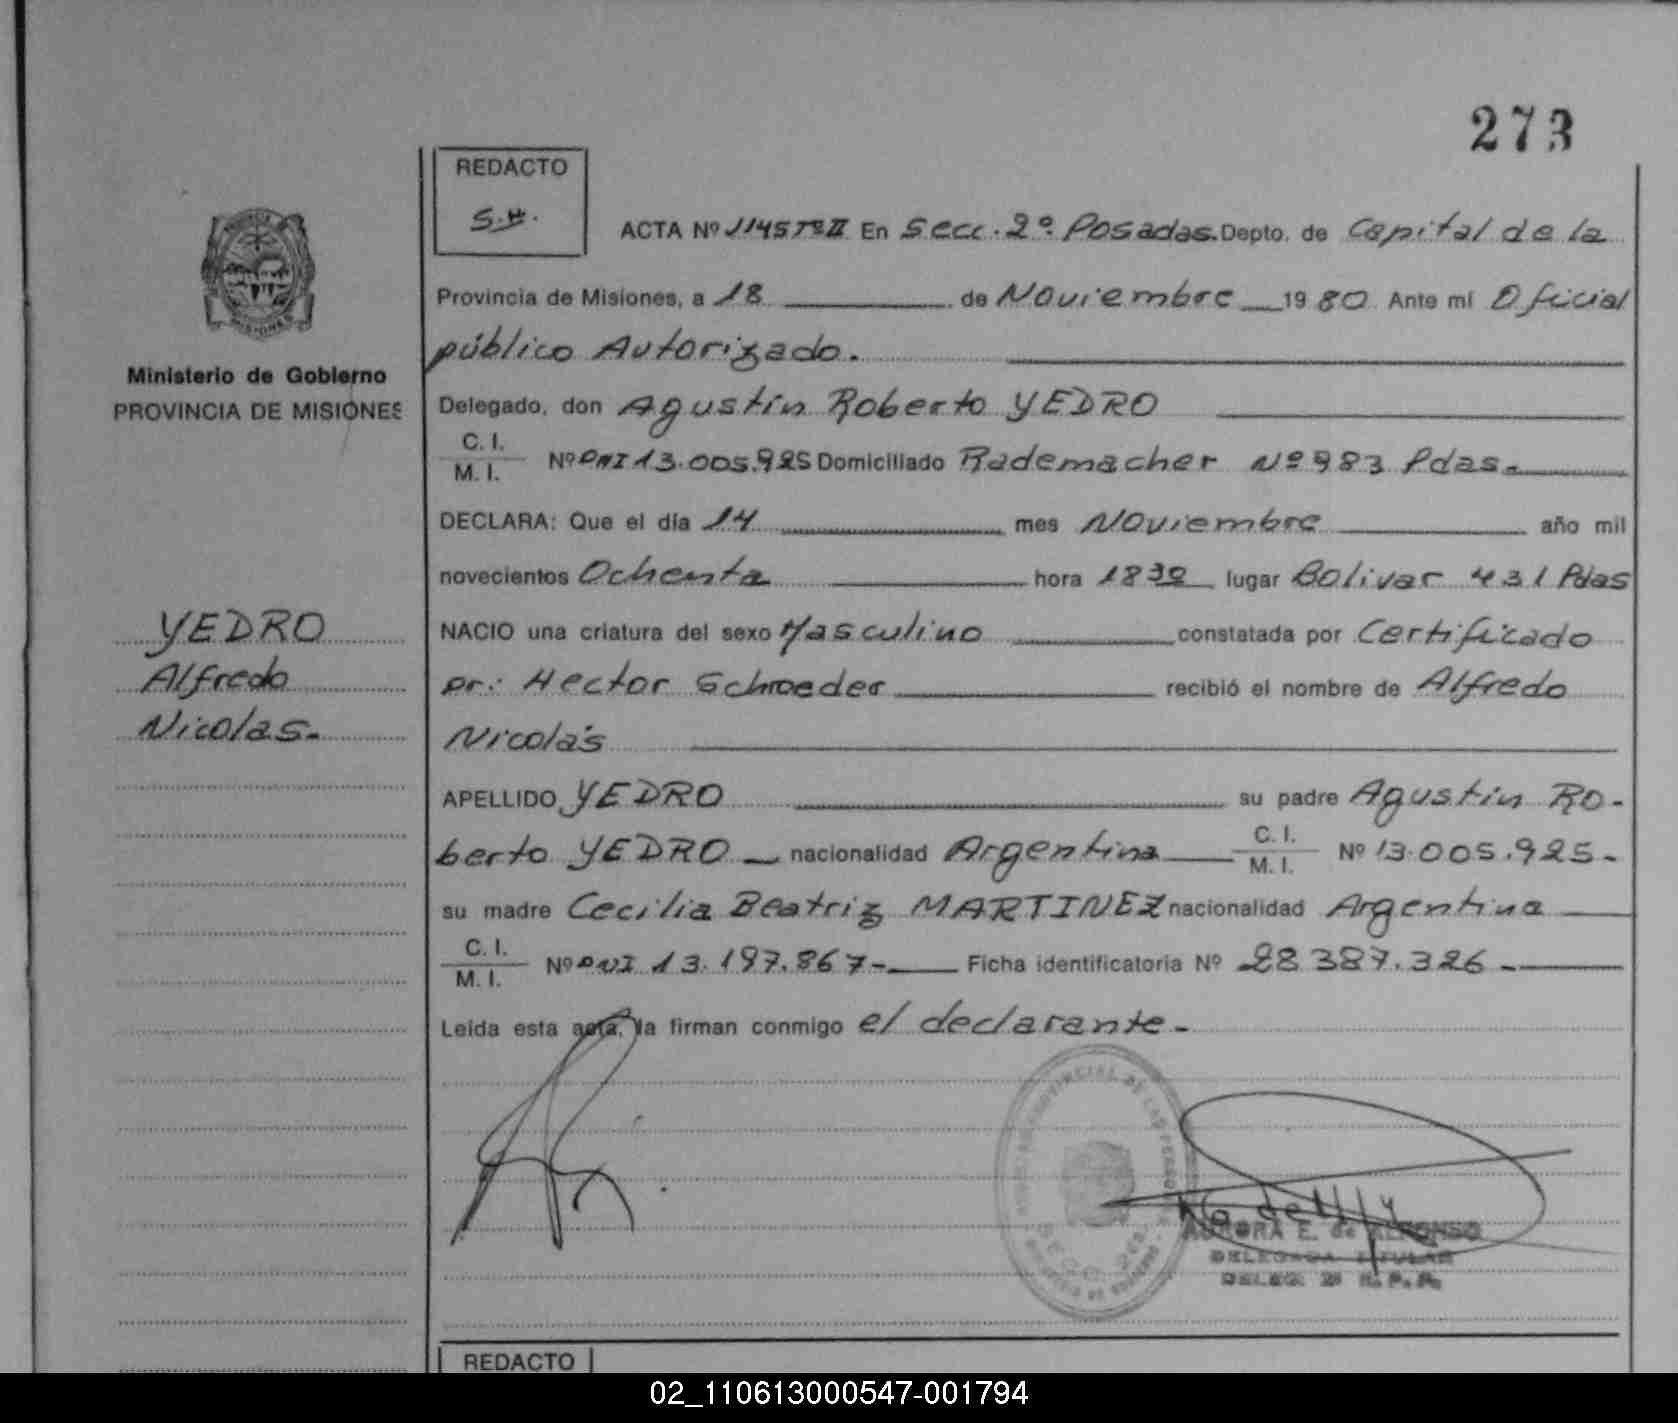 273
REDACTO
S.H.
ACTA Nº 1145 Tº II En Secc. 2º Posadas. Depto. de Capital de la
Provincia de Misiones, a 18 de Noviembre 19 80 Ante mí Oficial
público Autorizado.
Delegado, don Agustín Roberto YEDRO
C. I.
M. I. Nº DNI 13.005.925 Domiciliado Rademacher Nº 983 Pdas.
DECLARA: Que el día 14 mes Noviembre año mil
novecientos Ochenta hora 18 30 lugar Bolivar 431 Pdas
NACIO una criatura del sexo Masculino constatada por Certificado
Dr: Hector Schroeder recibió el nombre de Alfredo
Nicolás
APELLIDO YEDRO su padre Agustín Ro-
berto YEDRO nacionalidad Argentina C. I.
M. I. Nº 13.005.925-
su madre Cecilia Beatriz MARTINEZ nacionalidad Argentina
C. I.
M. I. Nº DNI 13.197.867- Ficha identificatoria Nº 28.387.326-
Leída esta acta, la firman conmigo el declarante-
MISIONES
Ministerio de Gobierno
PROVINCIA DE MISIONES
YEDRO
Alfredo
Nicolas-
PROVINCIAL DE LAS PERSO
SECC. 2
AURORA E. de ALFONSO
DELEGADA TITULAR
DELEG. 2ª R. P. P.
REDACTO
02_110613000547-001794